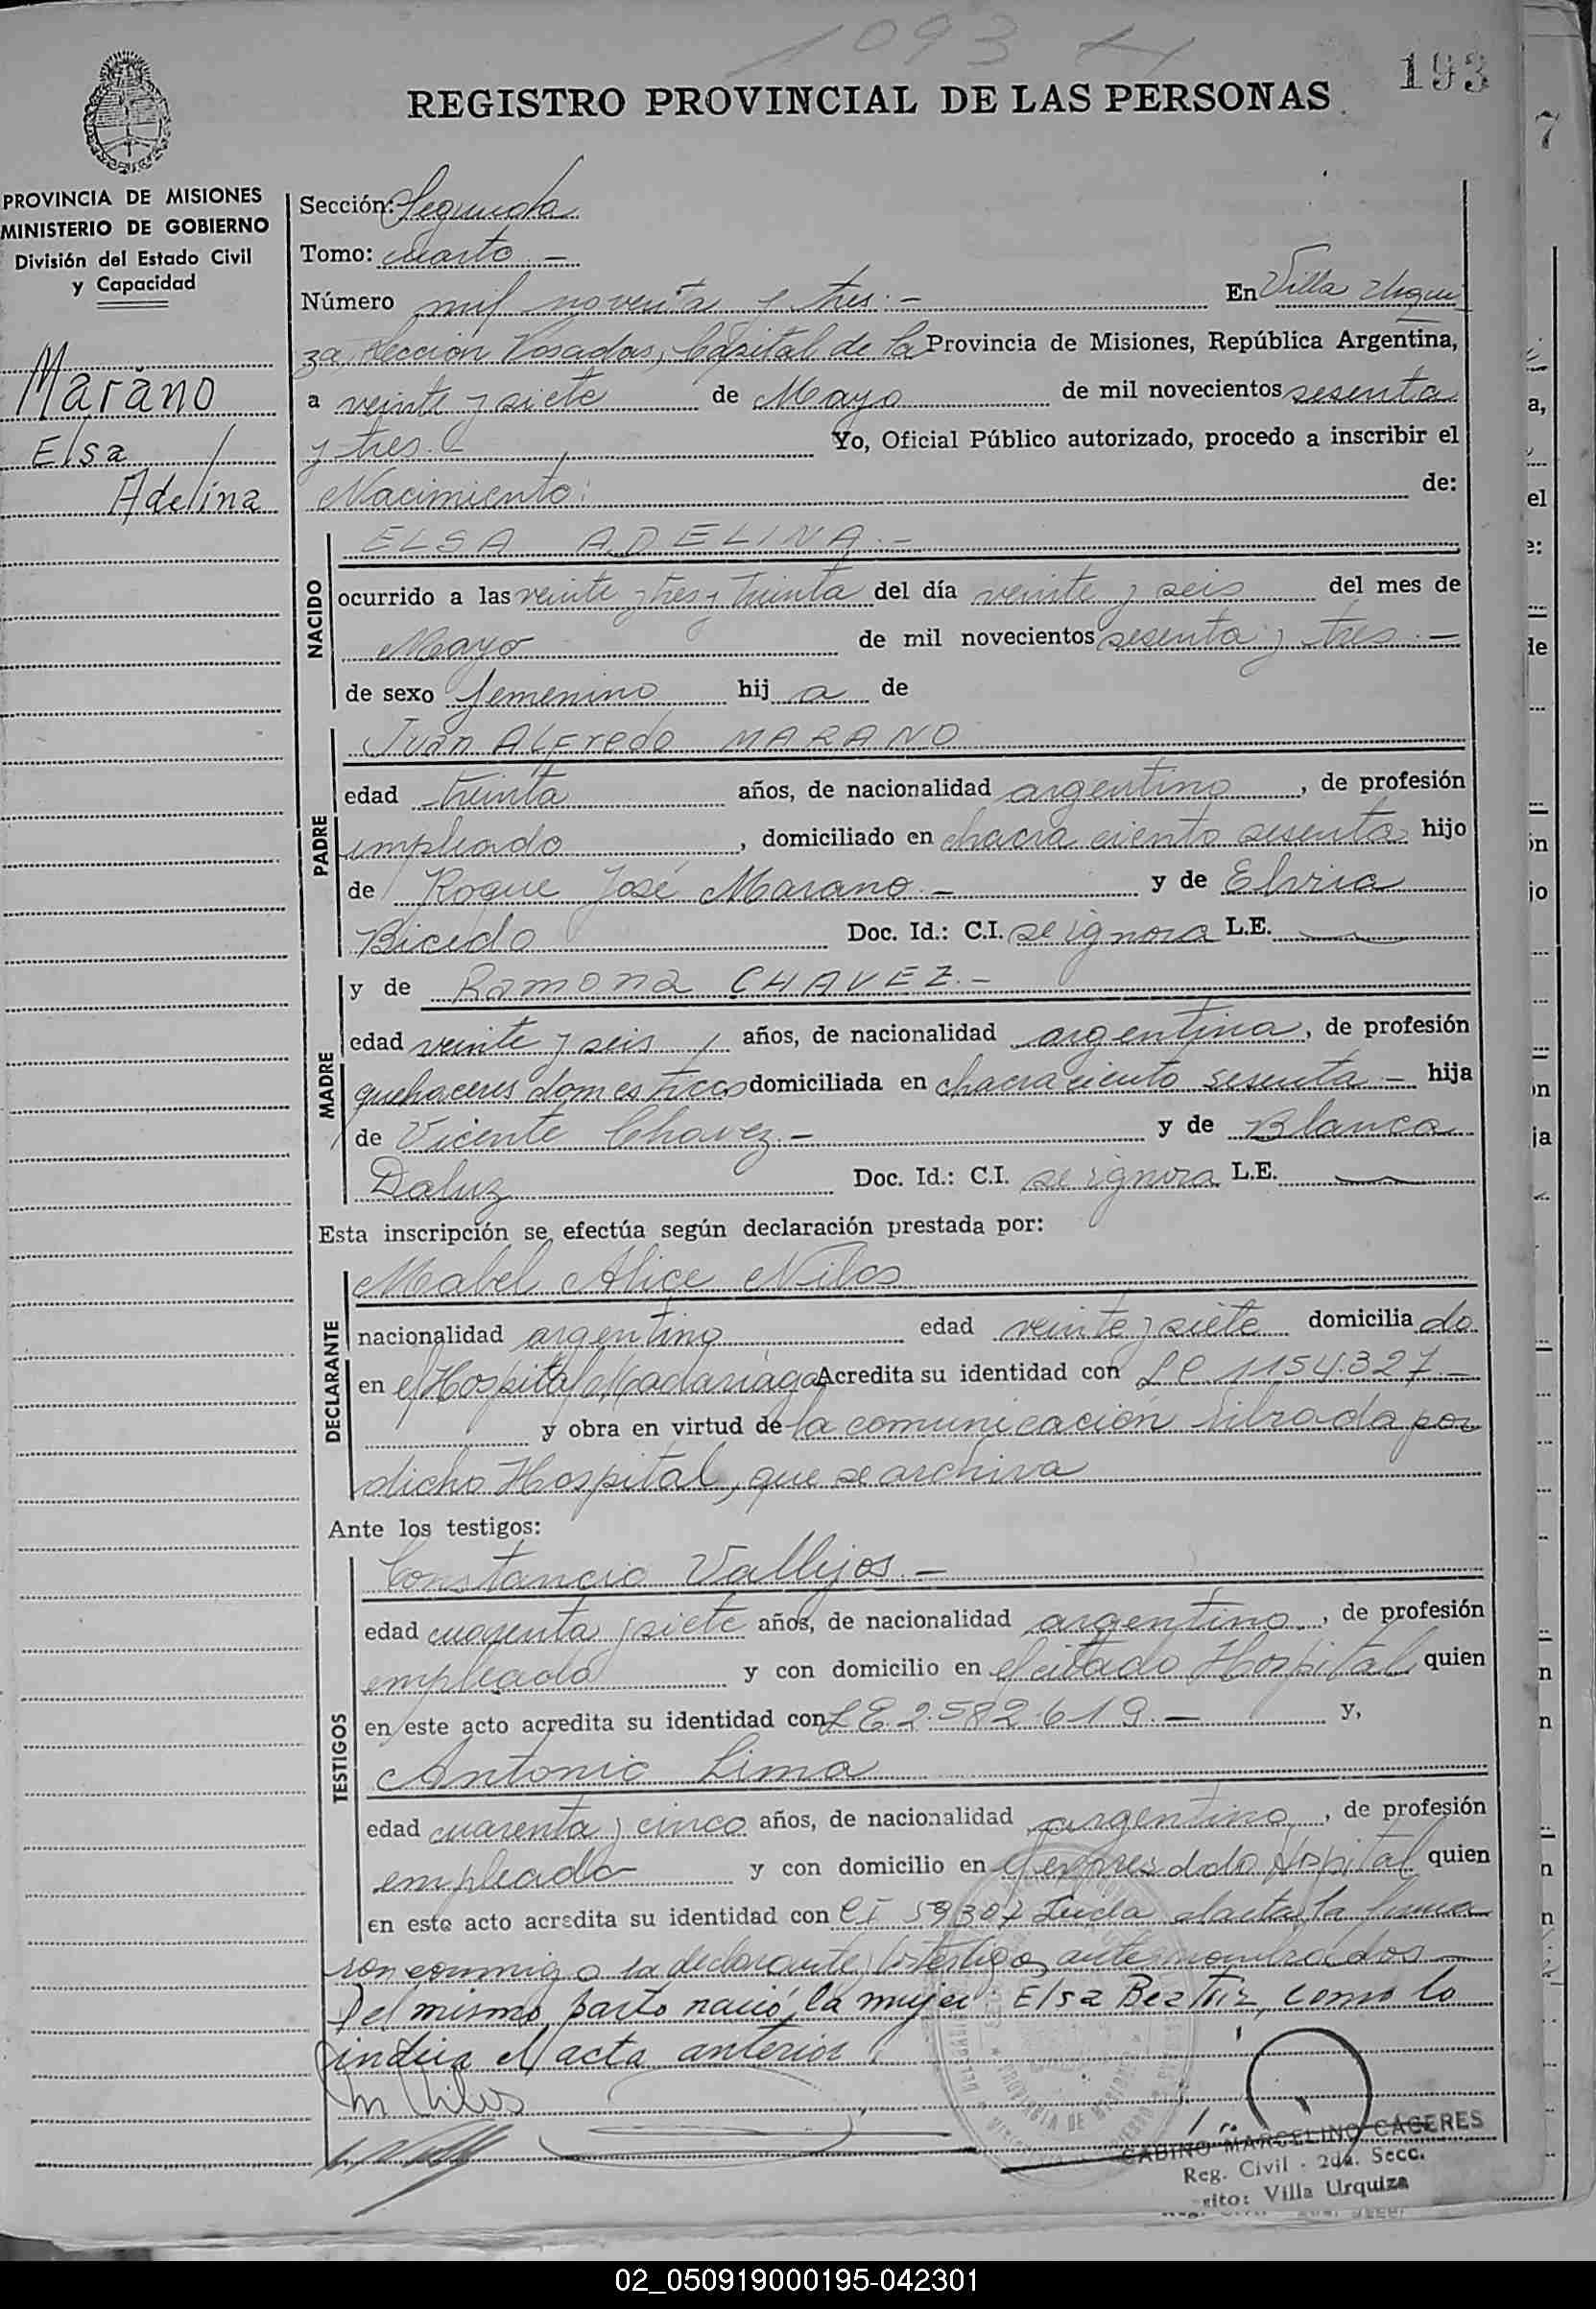 1093
193
REGISTRO PROVINCIAL DE LAS PERSONAS
PROVINCIA DE MISIONES
MINISTERIO DE GOBIERNO
División del Estado Civil
y Capacidad
Marano
Elsa
Adelina
Sección: Segunda
Tomo: cuarto. —
Número mil noventa y tres. — En Villa Urqui
za Sección Posadas, Capital de la Provincia de Misiones, República Argentina,
a veinte y siete de Mayo de mil novecientos sesenta
y tres. Yo, Oficial Público autorizado, procedo a inscribir el
Nacimiento: de:
NACIDO
ELSA ADELINA. —
ocurrido a las veinte y tres y treinta del día veinte y seis del mes de
Mayo de mil novecientos sesenta y tres. —
de sexo femenino hij a de
PADRE
Juan ALFredo MARANO
edad treinta años, de nacionalidad argentino, de profesión
empleado, domiciliado en chacra ciento sesenta hijo
de Roque José Marano. — y de Elvira
Bicedo Doc. Id.: C.I. se ignora L.E. —
MADRE
y de Ramona CHAVEZ. —
edad veinte y seis años, de nacionalidad argentina, de profesión
quehaceres domesticos domiciliada en chacra ciento sesenta — hija
de Vicente Chavez. — y de Blanca
Daluz Doc. Id.: C.I. se ignora L.E. —
Esta inscripción se efectúa según declaración prestada por:
DECLARANTE
Mabel Alice Nilos
nacionalidad argentino edad veinte y siete domicilia do
en el Hospital Madariaga Acredita su identidad con LC 1154.327. —
y obra en virtud de la comunicación librada por
dicho Hospital, que se archiva
Ante los testigos:
TESTIGOS
Constancio Vallejos. —
edad cuarenta y siete años, de nacionalidad argentino, de profesión
empleado y con domicilio en el citado Hospital quien
en este acto acredita su identidad con LE 2.582.619. — y,
Antonio Lima
edad cuarenta y cinco años, de nacionalidad argentino, de profesión
empleado y con domicilio en el expresado Hospital quien
en este acto acredita su identidad con CI 59307 Leida el acta la firma
ron conmigo la declarante y los testigos antes nombrados —
Del mismo parto nació la mujer: Elsa Beatriz, como lo
indica el acta anterior.
GABINO MARCELINO CACERES
Reg. Civil - 2da. Secc.
Villa Urquiza
02_050919000195-042301